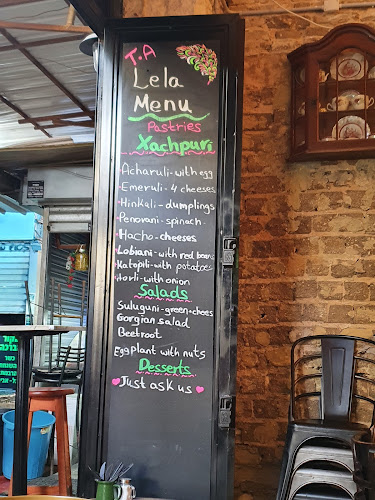 T.A
Lela
Menu
Pastries
Xachpuri
Acharuli-with egg
Emeruli-4 cheeses
Hinkali-dumplings
Penorani-spinach
Hacho-cheeses
Lobiani-with red beans
Katopili-with potatoes
Horli-with onion
Salads
Suluguni-green+chees
Gorgian salad
Beetroot
Eggplant with nuts
Desserts
Just ask us
ברכה
כשר